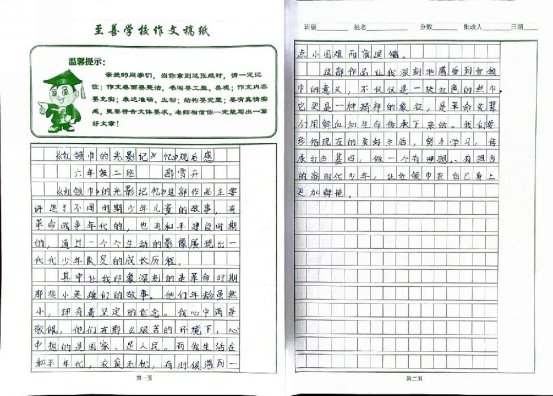 至善学校作文稿纸
温馨提示：
亲爱的同学们，当你拿到这张纸时，请一定记
住：作文卷面要整洁，书写要工整、美观；作文内容
要充实；表达准确、生动；结构要完整；要有真情实
感，更要符合文体要求。老师相信你一定能写出一篇
好文章！
《红领巾的光影记忆》观后感
六年级二班
《红领巾的光影记忆》这部作品主要
讲述了不同时期少年儿童的故事，有
革命战争年代的，也有和平建设时期
的，通过一个个生动的影像展现出一
代代少年队员的成长历程。
其中让我印象深刻的是革命时期
那些小英雄们的故事。他们年龄虽然
小，却有着坚定的信念。我心中满是
敬佩，他们在那么艰苦的环境下，心
中想的是国家、是人民。而我生活在
和平年代，衣食无忧，有时候遇到一
第一页
班级 姓名 分数 批改人 日期
点小困难而需退缩。
这部作品让我深刻地感受到红领
巾的意义，不仅仅是一块红色的三角
它更是一种精神的象征，是革命先辈
们用鲜血和生命传承下来的。我会努
珍惜现在的美好生活，努力学习，传
承红色基因，做一个有理想、有担当
的新时代少年，让红领巾在自己身上
更加鲜艳。
第二页